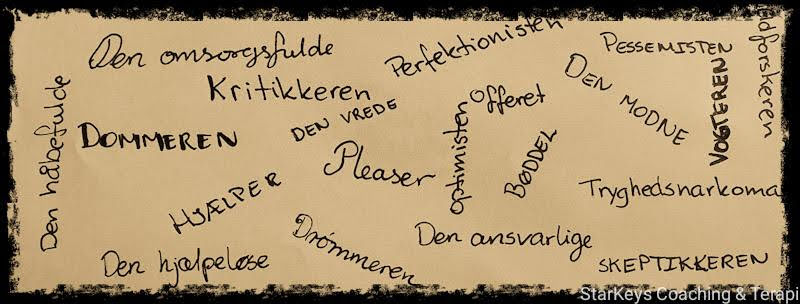 Den omsorgsfulde
Perfektionisten
PESSEMISTEN
Kritikkeren
Offeret
DEN MODNE
VOGTEREN
Den håbefulde
DOMMEREN
DEN VREDE
Pleaser
optimisten
BØDDEL
HJÆLPER
Tryghedsnarkoma
Den hjælpeløse
Drømmeren
Den ansvarlige
SKEPTIKKEREN
StarKeys Coaching & Terapi